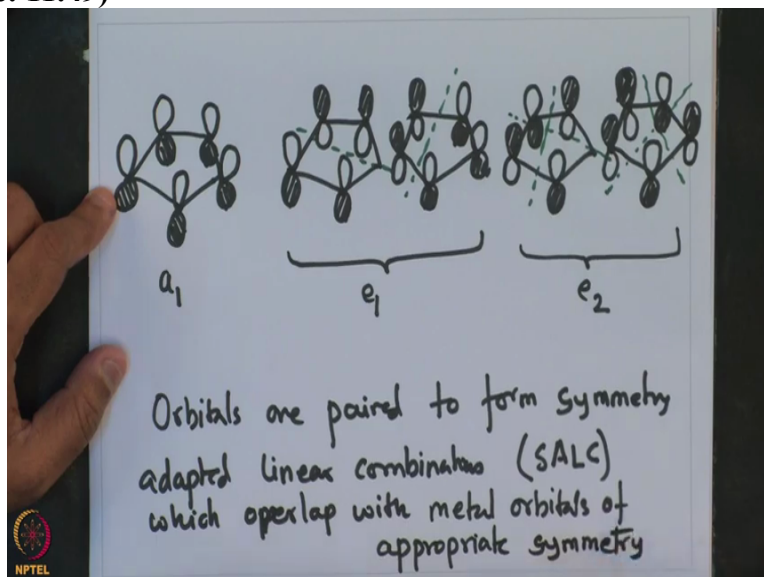 a₁
e₁
e₂
Orbitals are paired to form symmetry
adapted linear combinations (SALC)
which overlap with metal orbitals of
appropriate symmetry
NPTEL